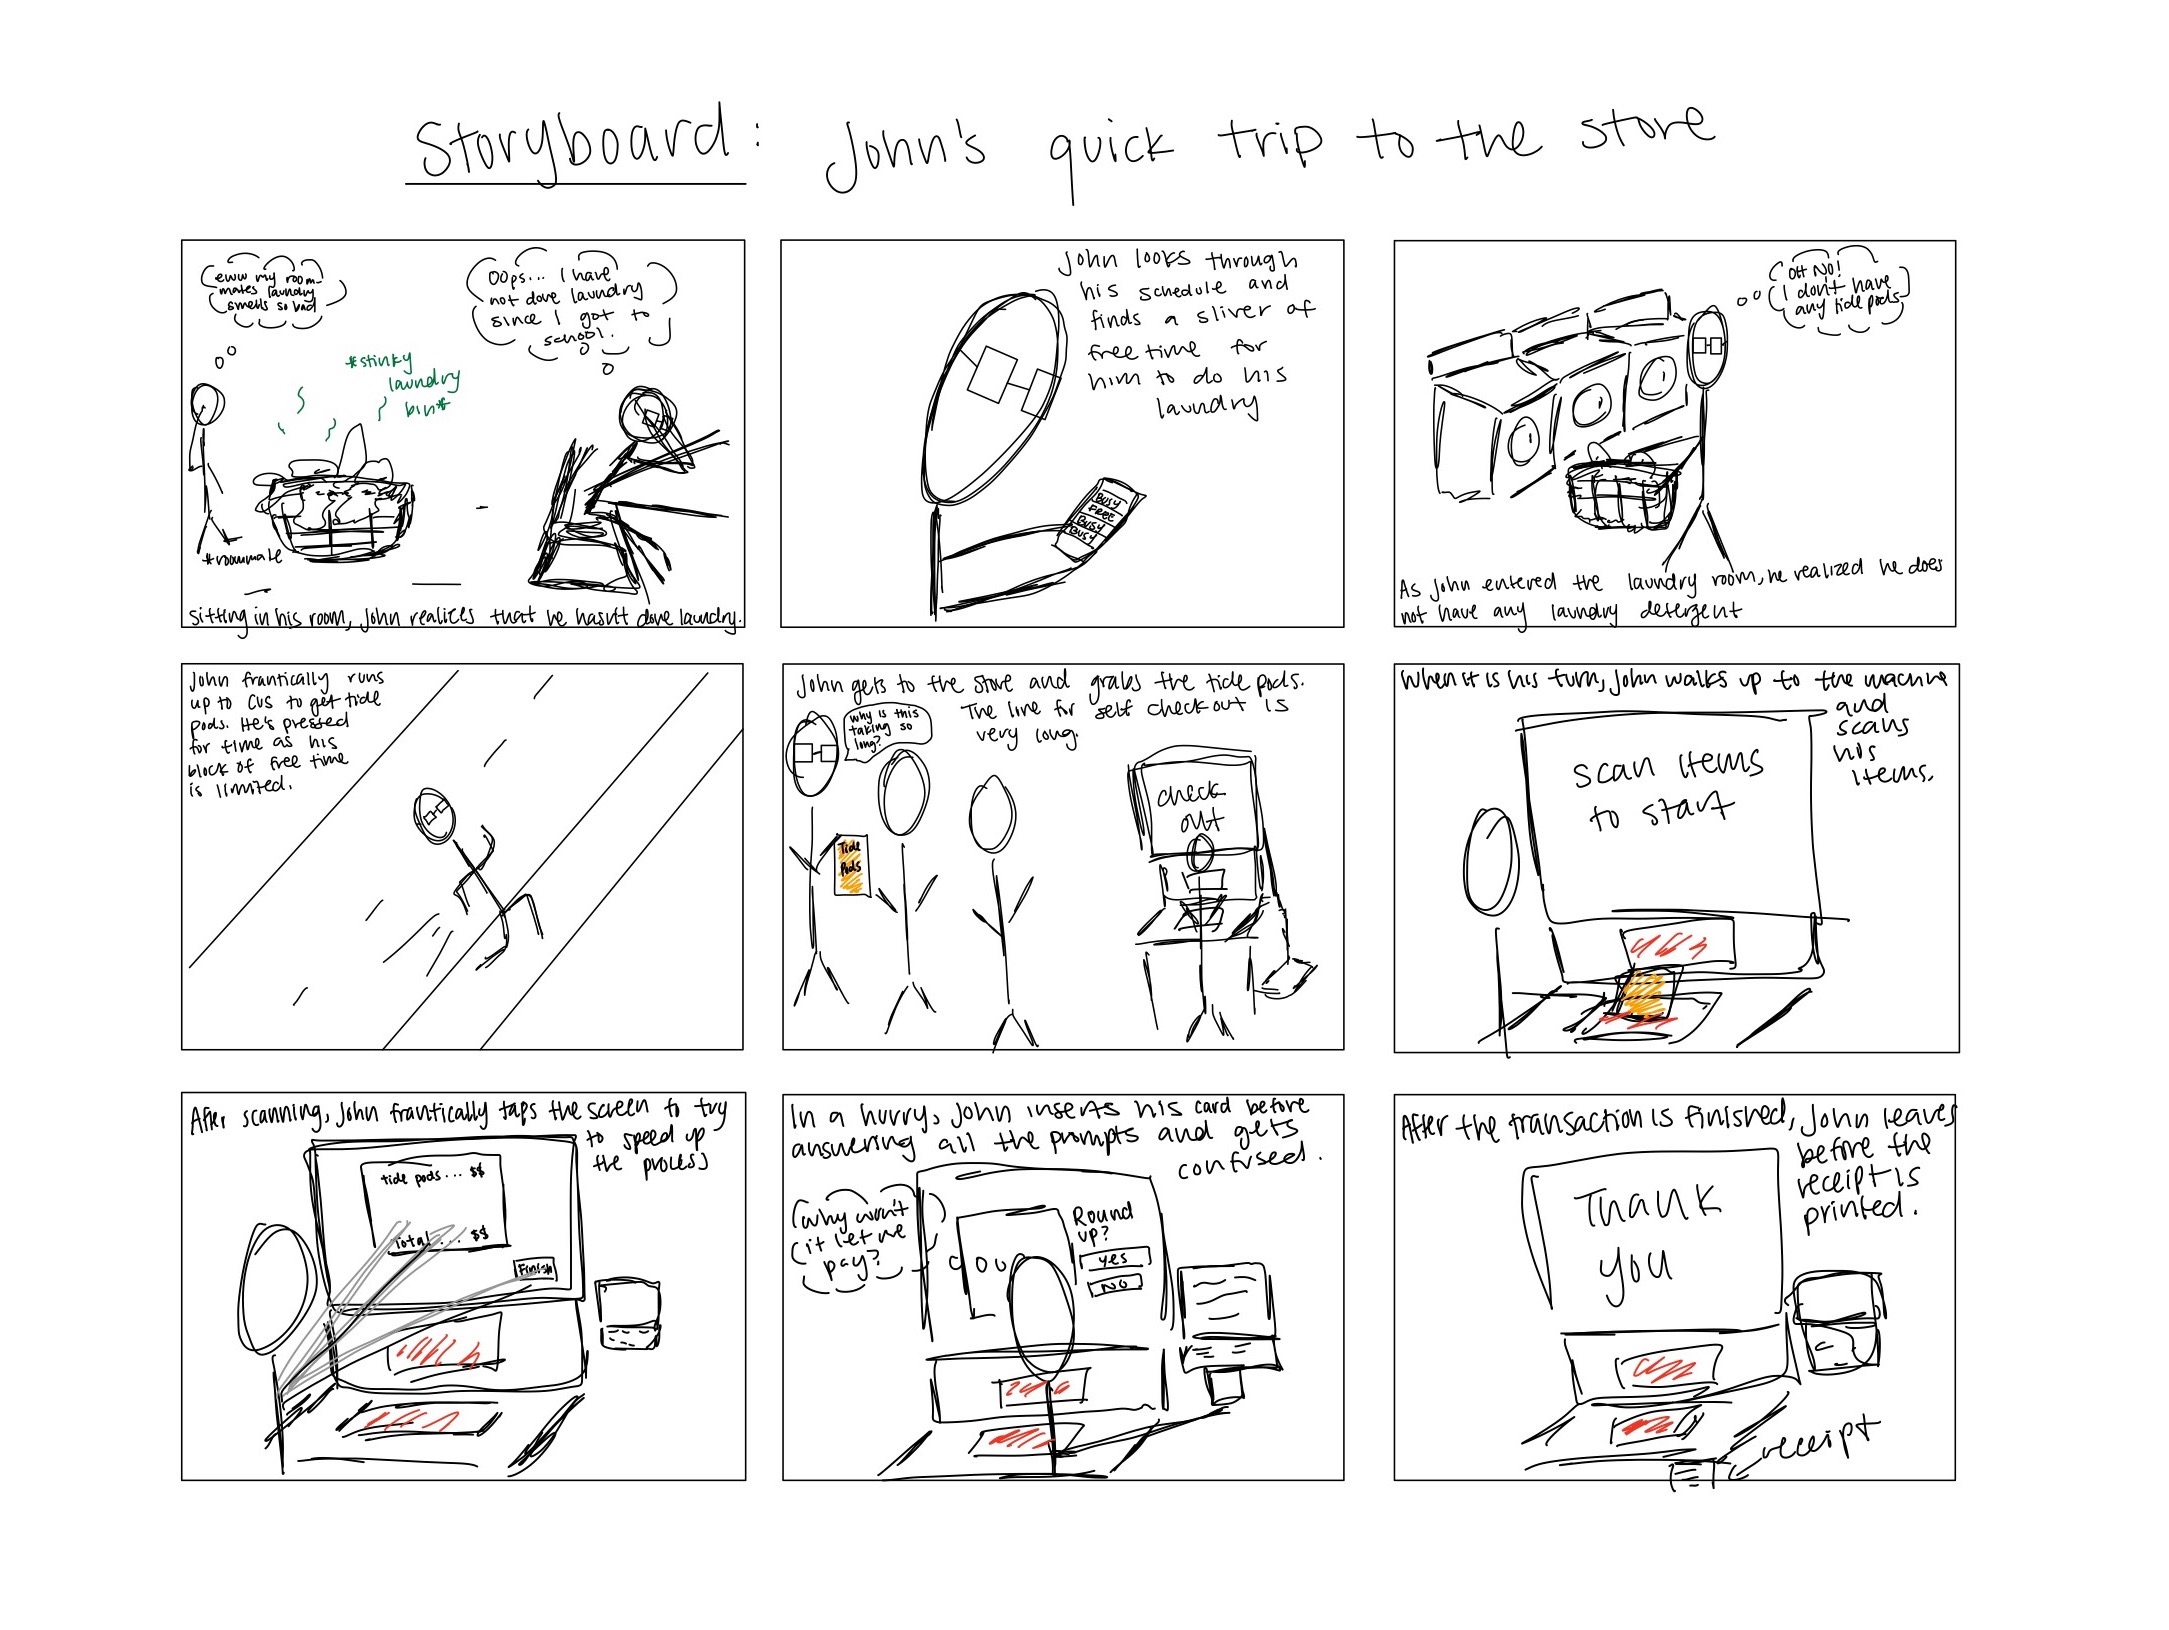 Storyboard: John's quick trip to the store
eww my room-
mates laundry
smells so bad
Oops... I have
not done laundry
since I got to
school.
*stinky
laundry
bin*
*roommate
Sitting in his room, John realizes that he hasn't done laundry.
John looks through
his schedule and
finds a sliver of
free time for
him to do his
laundry
BUSY
FREE
BUSY
BUSY
OH NO!
I don't have
any tide pods
As John entered the laundry room, he realized he does
not have any laundry detergent
John frantically runs
up to CVS to get tide
pods. He's pressed
for time as his
block of free time
is limited.
John gets to the store and grabs the tide pods.
The line for self checkout is
very long.
why is this
taking so
long?
Tide
Pods
check
out
When it is his turn, John walks up to the machine
and
scans
his
items.
scan items
to start
After scanning, John frantically taps the screen to try
to speed up
the process
tide pods... $$
Total... $$
Finish
In a hurry, John inserts his card before
answering all the prompts and gets
confused.
why won't
it let me
pay?
Round
up?
yes
NO
After the transaction is finished, John leaves
before the
receipt is
printed.
Thank
you
receipt